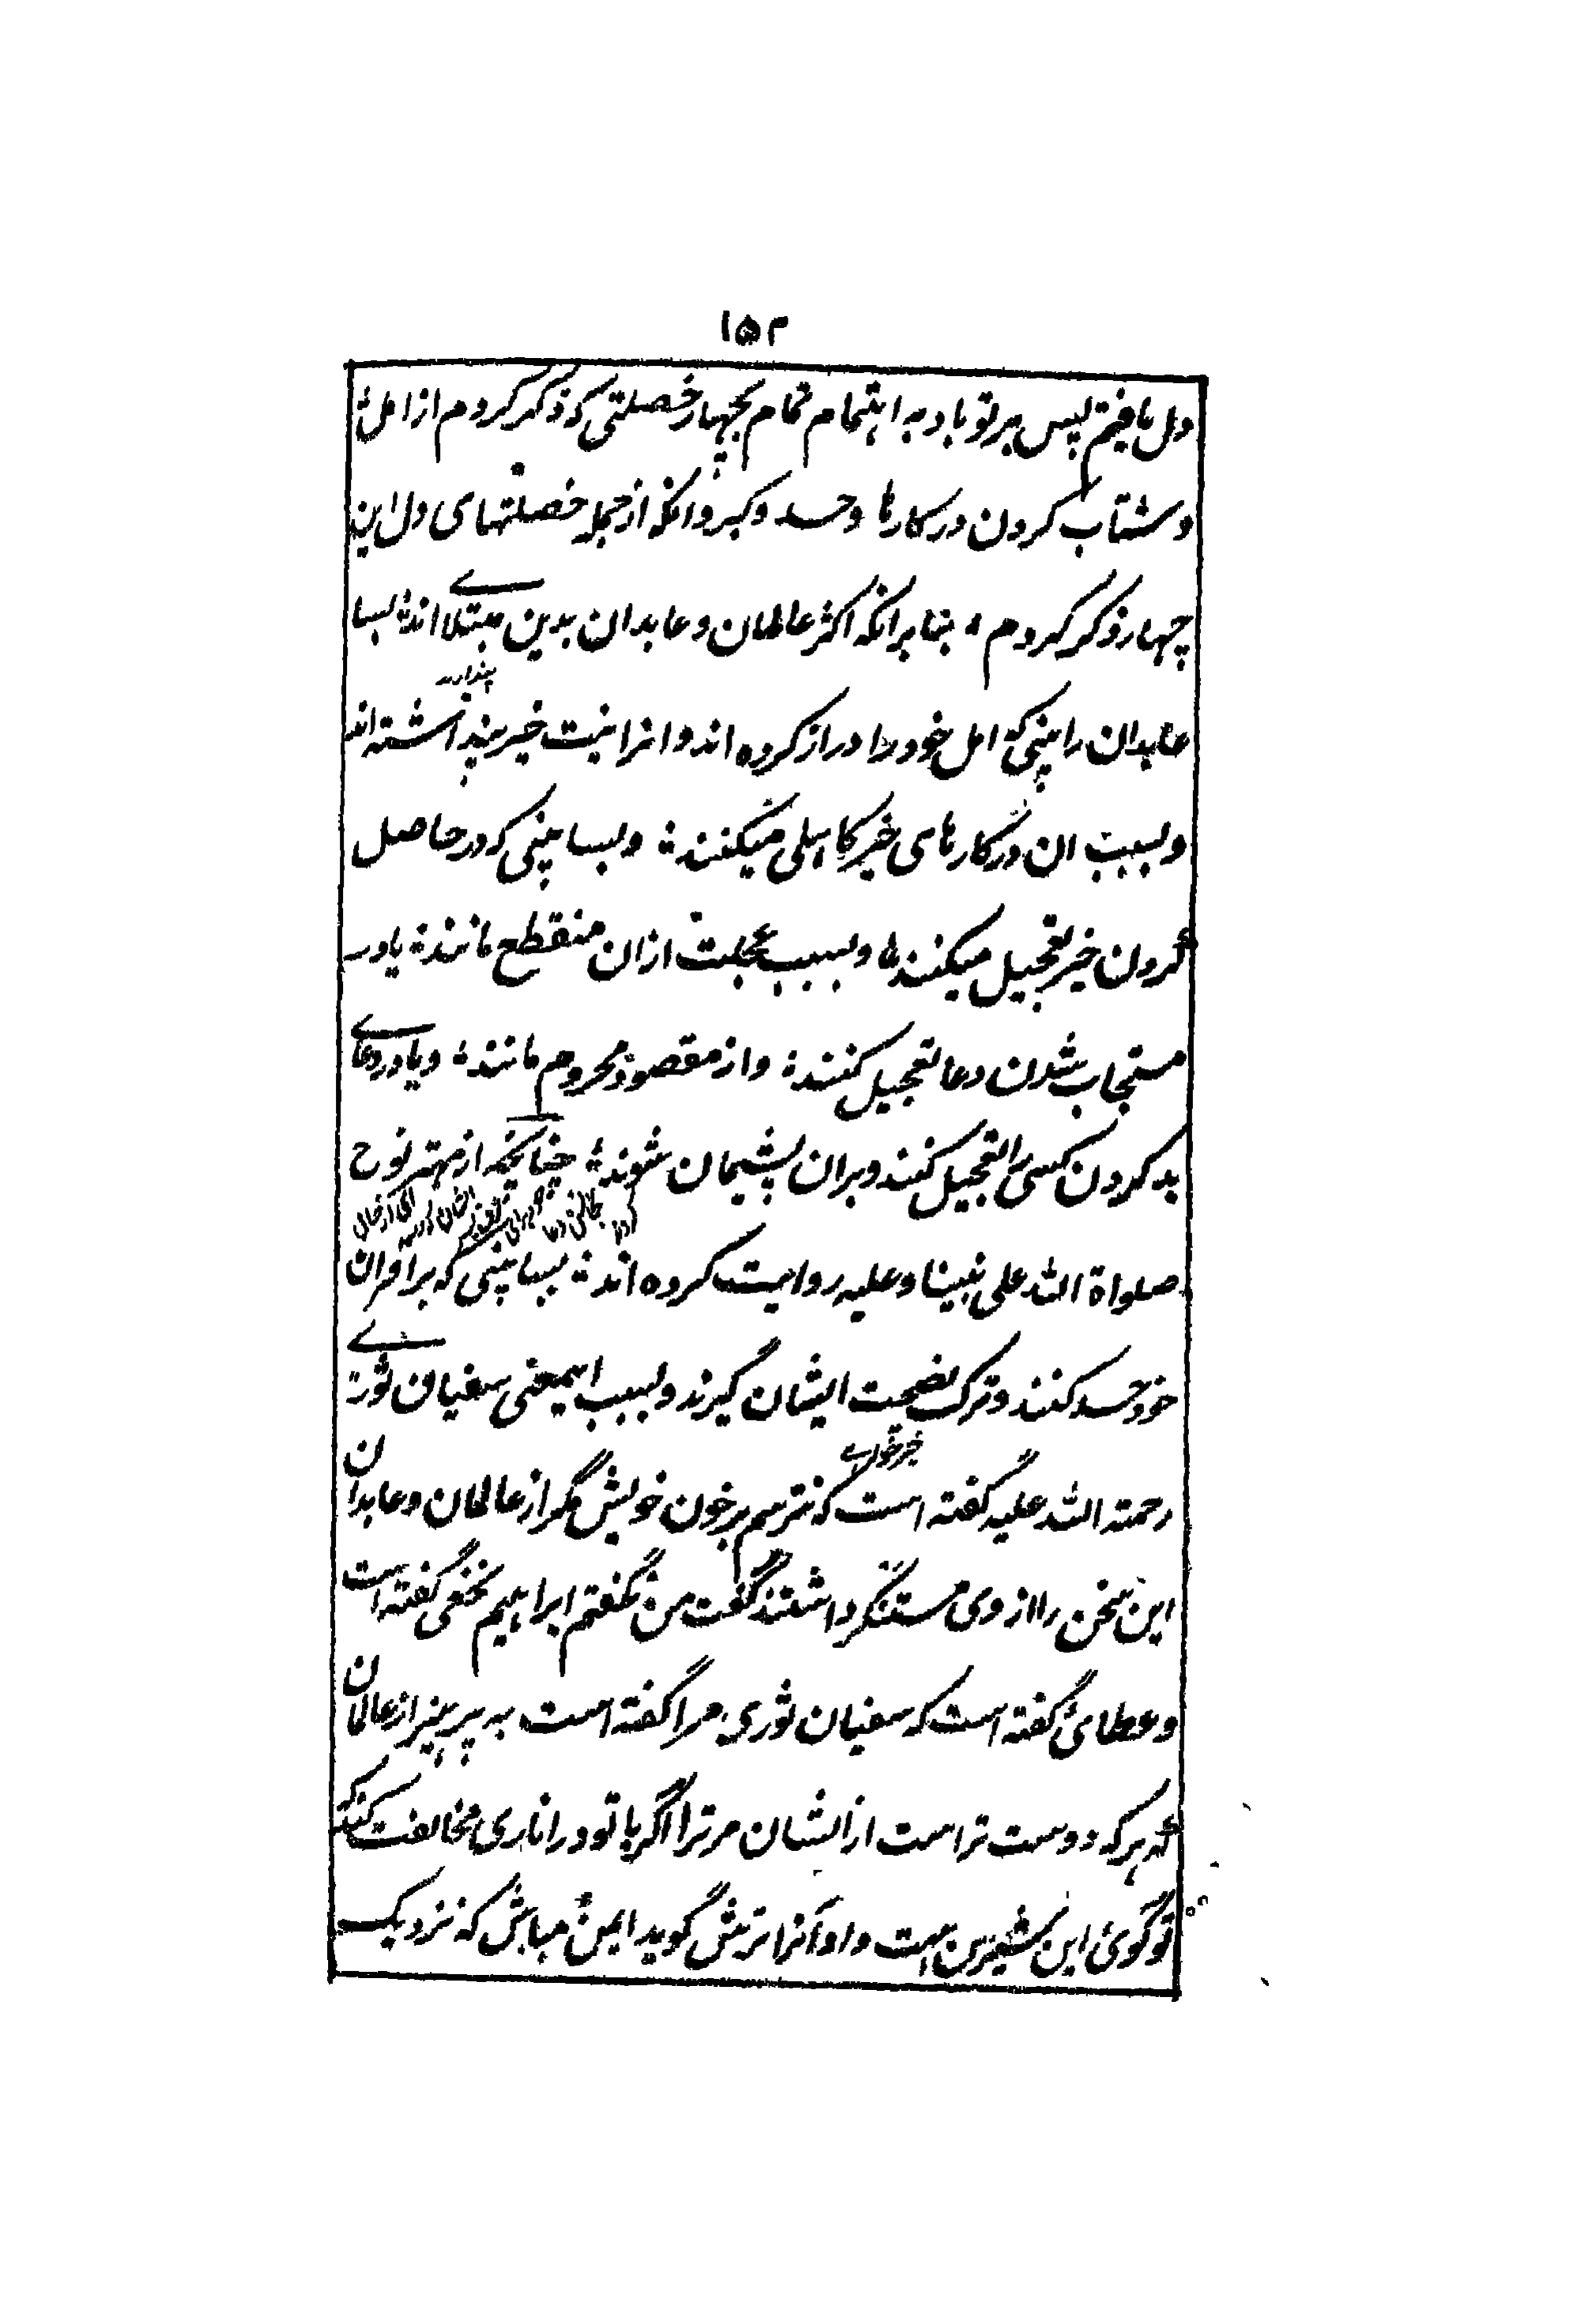 ۱۵۲
دل یافتم پس بر تو باد به اهتمام تمام بچهار خصلتی که ذکر کردم از امل
و شتاب کردن در کارها و حسد و کبر و انکه از جمله خصلتهای دل این
چهار ذکر کردم، بنا بر انکه اکثر عالمان و عابدان بدین مبتلا اند بسا
عابدان را بینی که امل خود را دراز کرده اند و انرا نیت خیر پنداشته اند
و بسبب ان در کارهای خیر کاهلی میکنند و بسا بینی که در حاصل
کردن خیر تعجیل میکنند و بسبب عجلت ازان منقطع مانند یا در
مستجاب شدن دعا تعجیل کنند و از مقصود محروم مانند و یا در دعای
بد کردن کسی را تعجیل کنند و بران پشیمان شوند چنانچه از مهتر نوح
صلواة الله علی نبینا و علیه روایت کرده اند بسا بینی که بر اقران
خود حسد کنند و ترک نصیحت ایشان گیرند و بسبب اینمعنی سفیان ثوری
رحمته الله علیه گفته است که نترسم بر خون خویش مگر از عالمان و عابدان
این سخن را از وی مستنکر داشتند گفت من نگفتم ابراهیم نخعی گفته است
و عطای گفته است که سفیان ثوری مرا گفته است به پرهیز از عالمان
که هر که دوست تر است از ایشان مر ترا اگر با تو در اناری مخالفت کند که
تو گوئ این شیرین است و او آنرا ترش گوید ایمن مباش که نزدیک